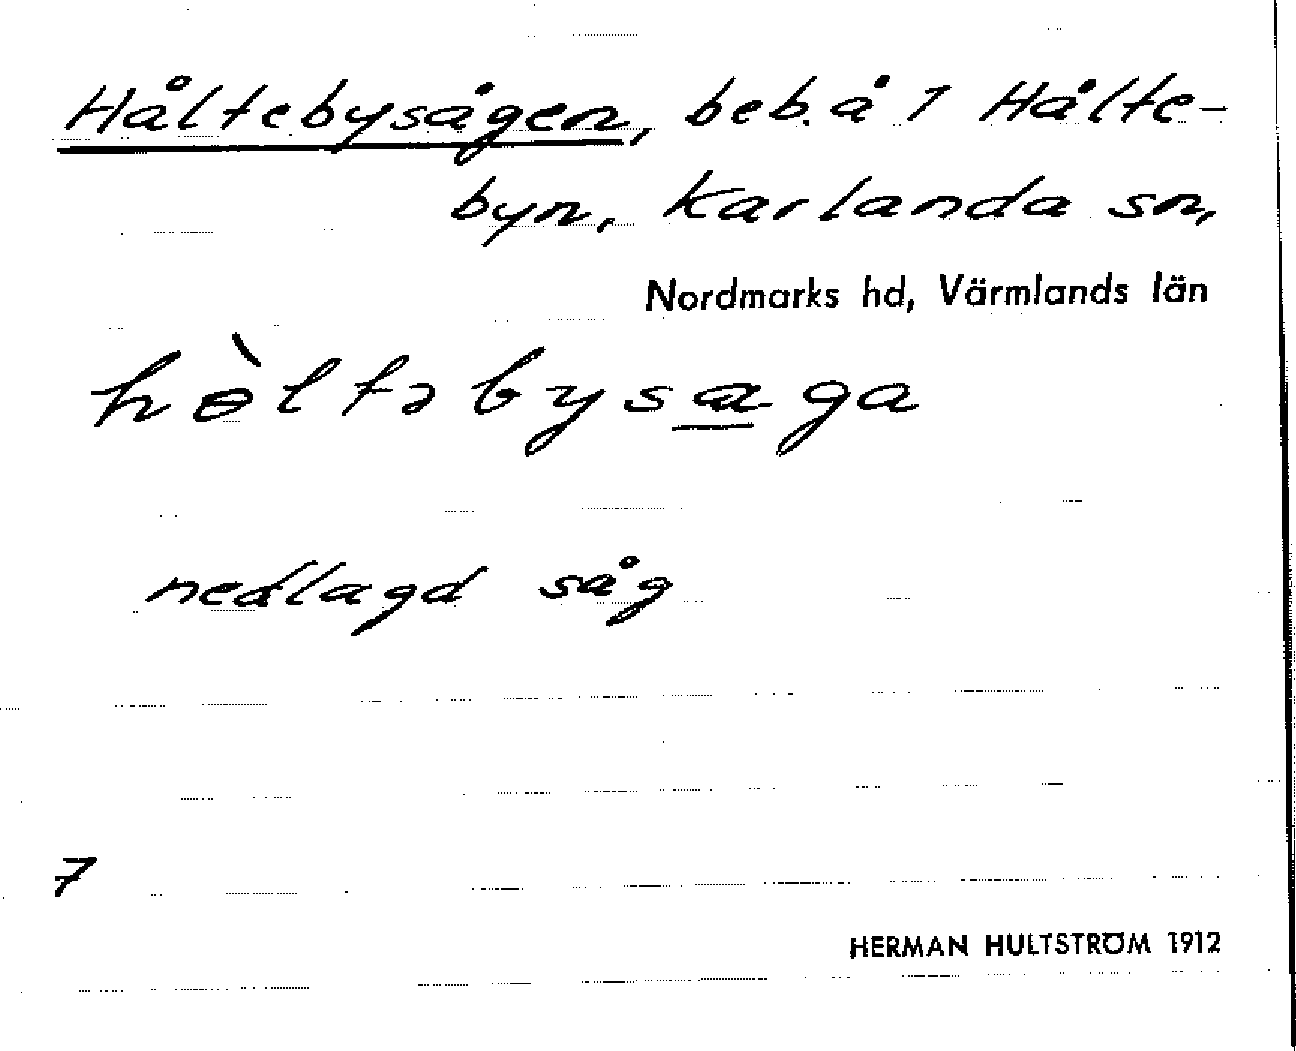 Håltebysågen, beb. å 1 Hålte-
byn, Karlanda sn,
Nordmarks hd, Värmlands län
hɵ̀ltəbysaga
nedlagd såg
7
HERMAN HULTSTRÖM 1912